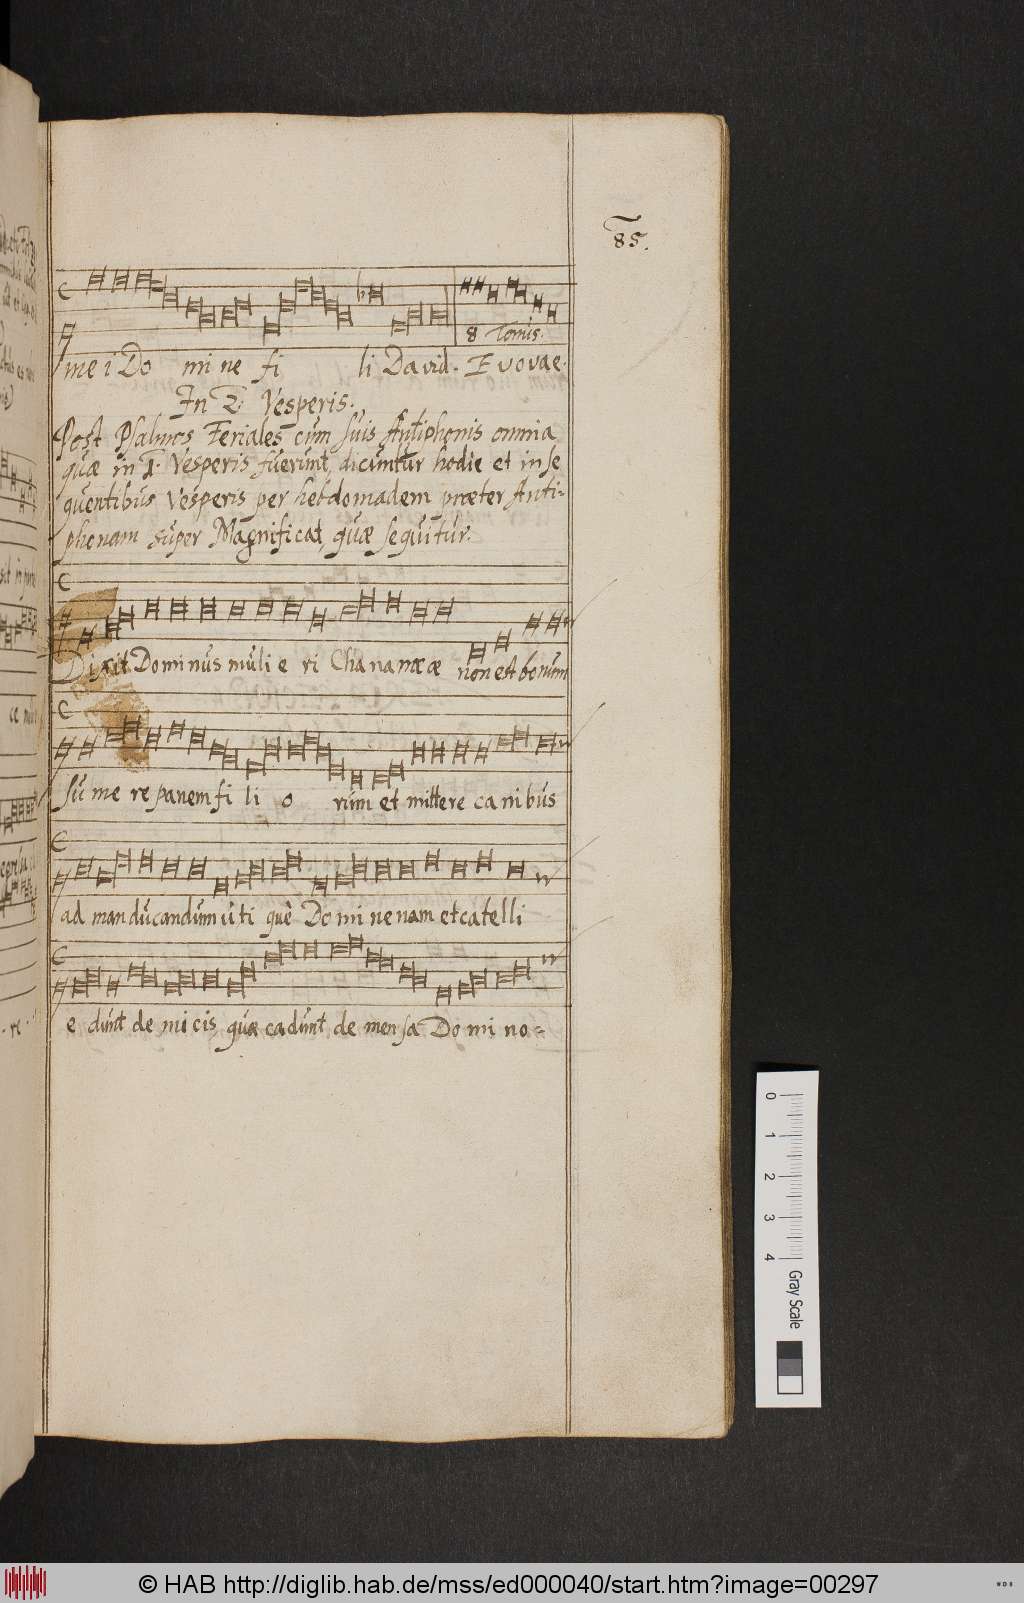 85.
8 Tonis.
me i Do mi ne fi li David. Evovae.
In 2. Vesperis.
Post Psalmos Feriales cum suis Antiphonis omnia
quæ in 1. Vesperis fuerunt, dicuntur hodie et in se
quentibus Vesperis per hebdomadem præter Anti-
phonam super Magnificat, quæ sequitur.
Dixit Dominus muli e ri Chananææ non est bonum
Su me re panem fi li o rum et mittere canibus
ad manducandum uti què Do mi ne nam et catelli
e dunt de mi cis quæ cadunt de mensa Do mi no-
0 1 2 3 4 Gray Scale
© HAB http://diglib.hab.de/mss/ed000040/start.htm?image=00297